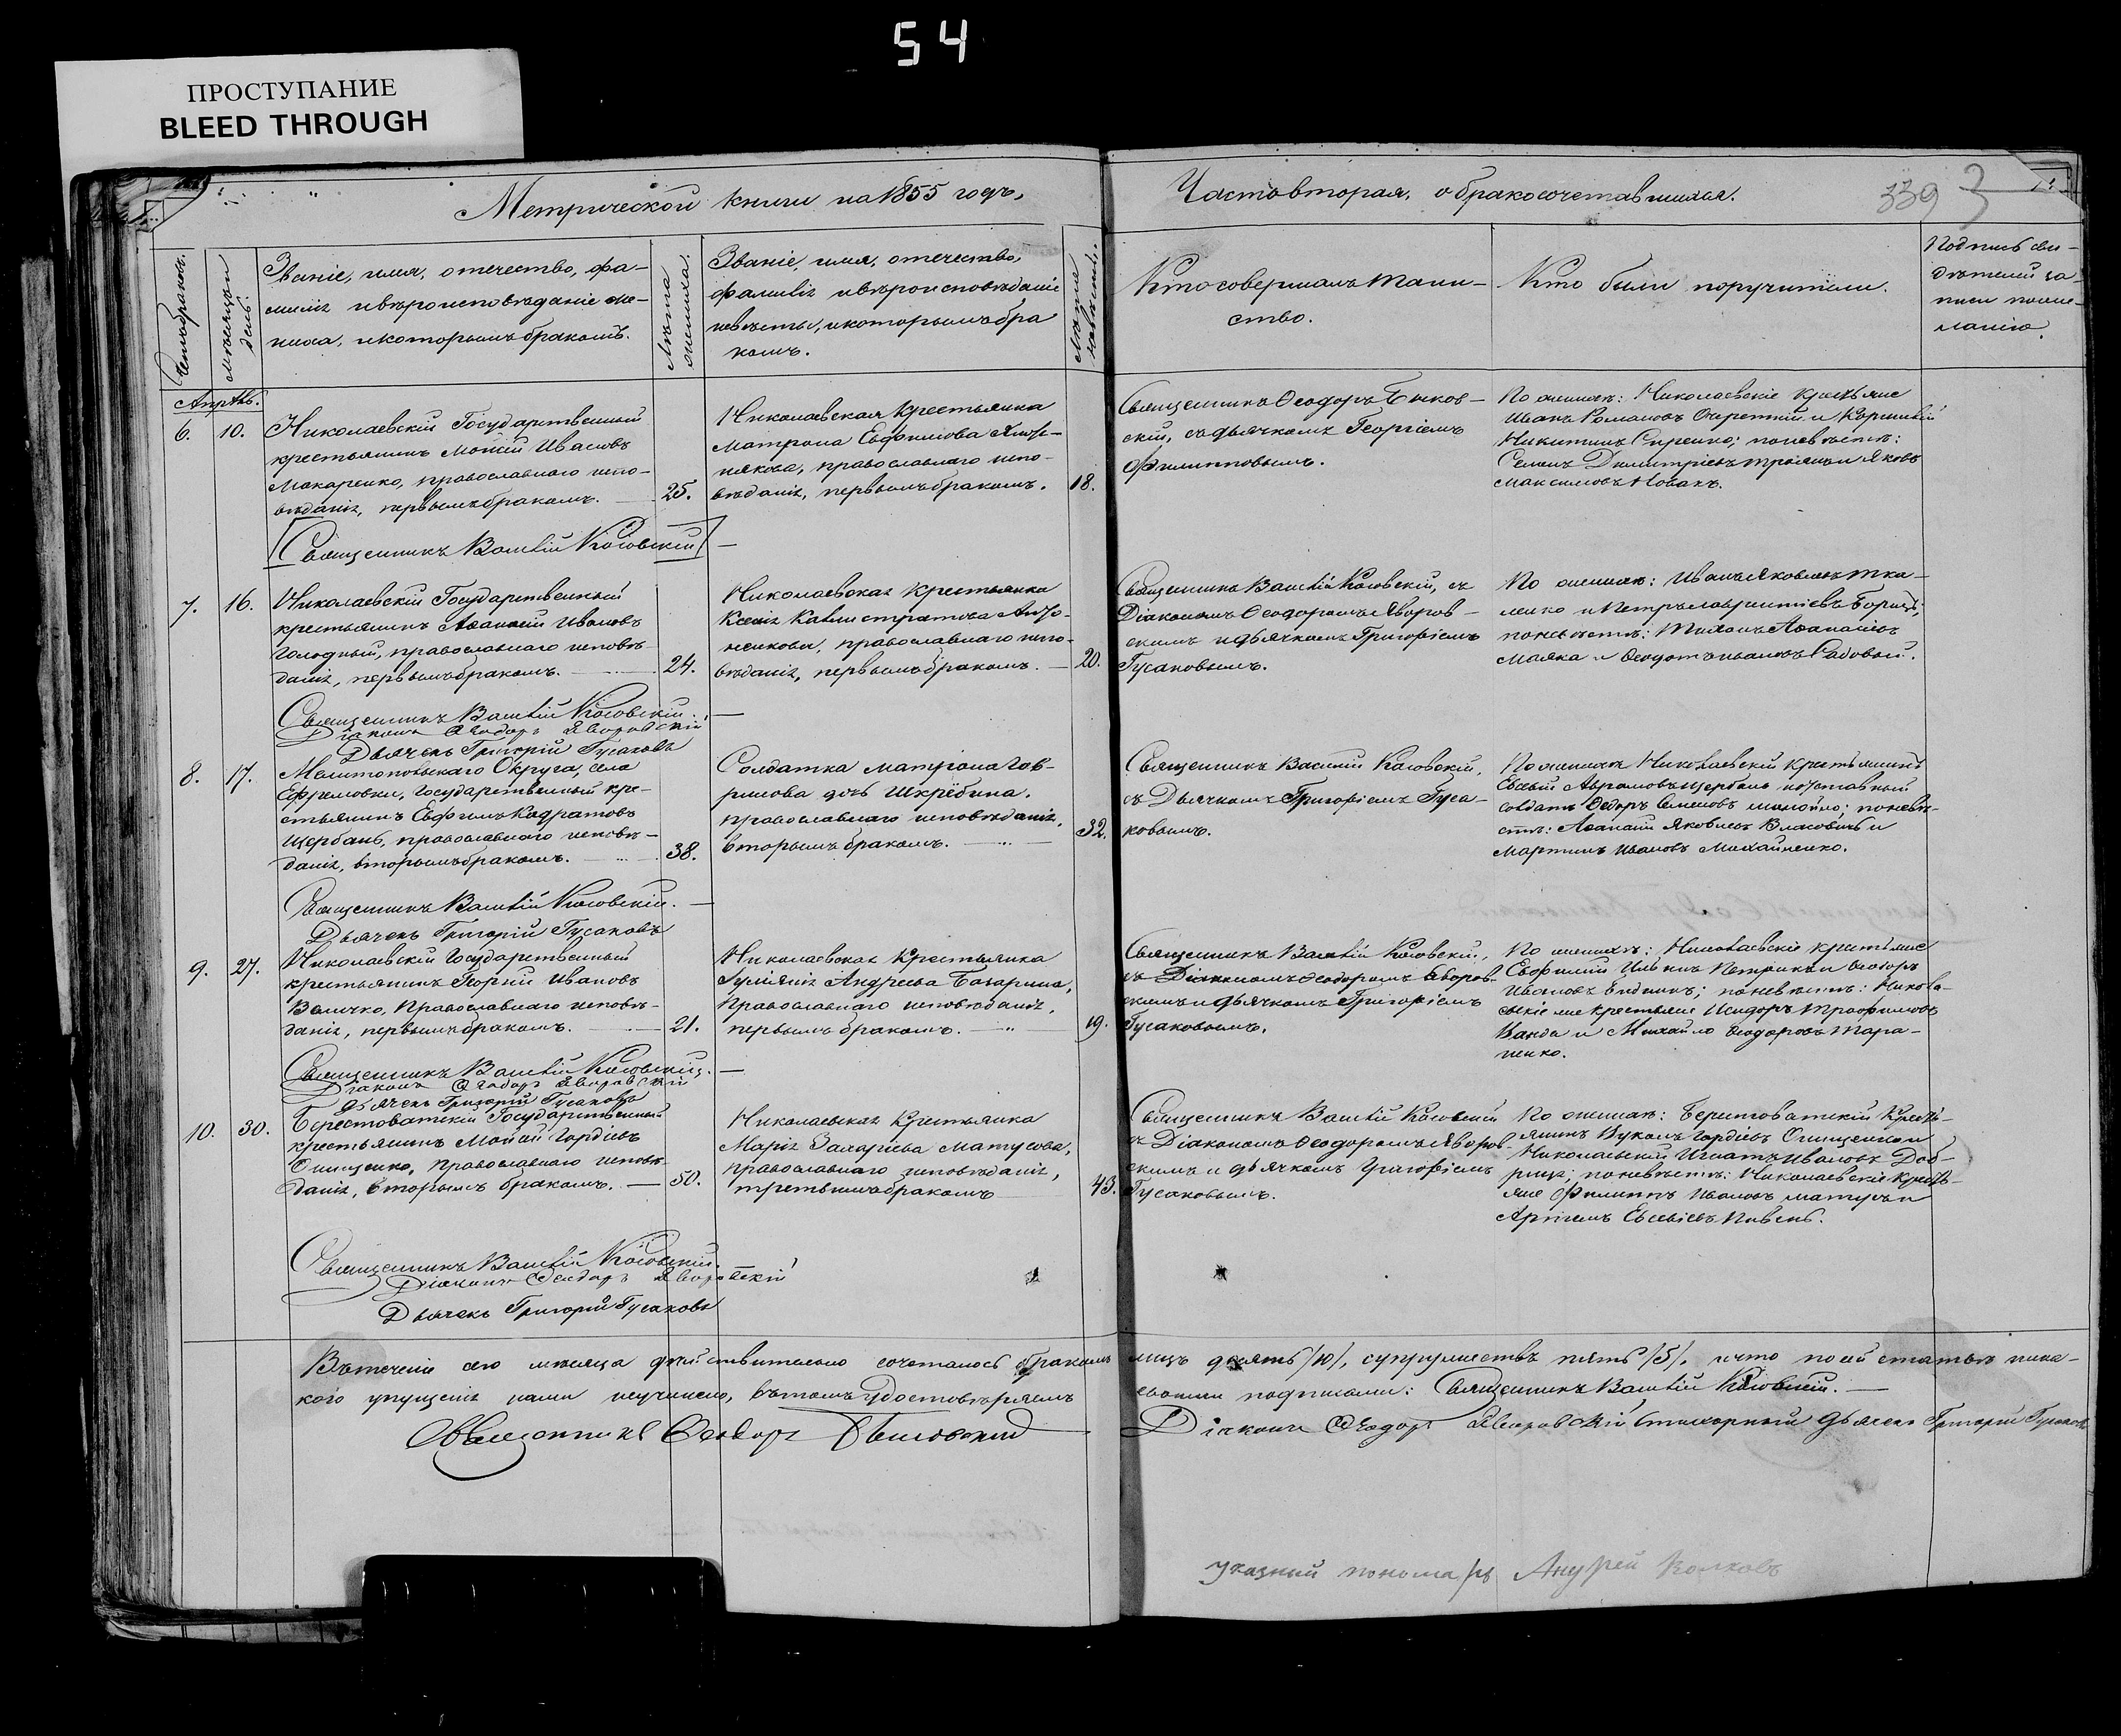 54
ПРОСТУПАНИЕ
BLEED THROUGH
Метрической книги на 1855 годъ,
Часть вторая, о бракосочетавшихся.
339 3
Счетъ браковъ.
Мѣсяцъ и день.
Званіе, имя, отечество, фа-
милія и вѣроисповѣданіе же-
ниха, и которымъ бракомъ.
Лѣта жениха.
Званіе, имя, отечество,
фамилія и вѣроисповѣданіе
невѣсты, и которымъ бра
комъ.
Лѣта невѣсты.
Кто совершалъ таин-
ство.
Кто были поручители.
Подпись сви-
дѣтелей за-
писи по же-
ланію.
Апрѣль.
6. 10.
Николаевскій Государственный
крестьянинъ Мойсей Ивановъ
Макаренко, православнаго испо-
вѣданія, первымъ бракомъ. 25.
Николаевская Крестьянка
Матрона Евфимова
православнаго испо-
вѣданія, первымъ бракомъ. 18.
Священникъ Ѳеодоръ Быков-
скій, съ дьячкомъ Георгіемъ
Филипповымъ.
По женихѣ: Николаевскіе крестьяне
Иванъ Романовъ и
Никитинъ по невѣстѣ:
Семенъ Димитріевъ Троянъ и Яковъ
Максимовъ Новакъ.
Священникъ Василій Косовскій
7. 16.
Николаевскій Государственный
крестьянинъ Аѳанасій Ивановъ
Голодный, православнаго исповѣ-
данія, первымъ бракомъ. 24.
Николаевская Крестьянка
Ксенія Калистратова
православнаго испо-
вѣданія, первымъ бракомъ. 20.
Священникъ Василій Косовскій, съ
Діакономъ Ѳеодоромъ Яворов-
скимъ и дьячкомъ Григоріемъ
Гусаковымъ.
По женихѣ: Иванъ Яковлевъ Тка-
ленко и Петръ Лаврентіевъ
по невѣстѣ: Аѳанасіевъ
Маяка и Ѳеодотъ Ивановъ Садовый.
Священникъ Василій Косовскій.
Діаконъ Ѳеодоръ Яворовскій
Дьячекъ Григорій Гусаковъ
8. 17.
Мелитопольскаго Округа, села
Ефремовки, Государственный кре-
стьянинъ Евфимъ Кадратовъ
Щербань, православнаго исповѣ-
данія, вторымъ бракомъ. 38.
Солдатка Матрона Гав-
рилова дочь Шкребина,
православнаго исповѣданія,
вторымъ бракомъ. 32.
Священникъ Василій Косовскій,
съ Дьячкомъ Григоріемъ Гуса-
ковымъ.
По женихѣ Николаевскій крестьянинъ
Евсѣвій Аврамовъ Щербань и отставный
солдатъ Ѳедоръ Семеновъ по невѣ-
стѣ: Аѳанасій Яковлевъ Власовичъ и
Мартинъ Ивановъ Михайленко.
Священникъ Василій Косовскій.
Дьячекъ Григорій Гусаковъ
9. 27.
Николаевскій Государственный
крестьянинъ Георгій Ивановъ
Величко, Православнаго исповѣ-
данія, первымъ бракомъ. 21.
Николаевская Крестьянка
Іуліанія Андреева Базарина,
Православнаго исповѣданія,
первымъ бракомъ. 19.
Священникъ Василій Косовскій,
съ Діакономъ Ѳеодоромъ Яворов-
скимъ и дьячкомъ Григоріемъ
Гусаковымъ.
По женихѣ: Николаевскіе крестьяне
Евфимій Ильинъ и Ѳеодоръ
Ивановъ по невѣстѣ: Никола-
евскіе же крестьяне Исидоръ Трофимовъ
и Михайло Ѳеодоровъ Тара-
ненко.
Священникъ Василій Косовскій.
Діаконъ Ѳеодоръ Яворовскій
дьячекъ Григорій Гусаковъ
10. 30.
Берестоватскій Государственный
крестьянинъ Мойсей Гордіевъ
Онищенко, Православнаго исповѣ-
данія, вторымъ бракомъ. 50.
Николаевская Крестьянка
Марія Захаріева Матусова,
православнаго исповѣданія,
третьимъ бракомъ 43.
Священникъ Василій Косовскій
съ Діакономъ Ѳеодоромъ Яворов-
скимъ и дьячкомъ Григоріемъ
Гусаковымъ.
По женихѣ: Берестоватскій Кресть-
янинъ Гордіевъ Онищенко и
Николаевскій Игнатъ Ивановъ
по невѣстѣ: Николаевскіе Кресть-
яне Филиппъ Ивановъ Матусъ и
Артемъ Евсевіевъ Пивень.
Священникъ Василій Косовскій.
Діаконъ Ѳеодоръ Яворовскій
Дьячекъ Григорій Гусаковъ
Въ теченіе сего мѣсяца дѣйствительно сочеталось бракомъ лицъ десять /10/, супружествъ пять /5/, и что по сей статьѣ ника-
кого упущенія нами неучинено, въ томъ удостовѣряемъ своими подписами: Священникъ Василій Косовскій.
Священникъ Ѳеодоръ Быковскій
Діаконъ Ѳеодоръ Яворовскій Стихарный дьячекъ Григорій Гусаковъ
указный пономарь Андрей Волковъ